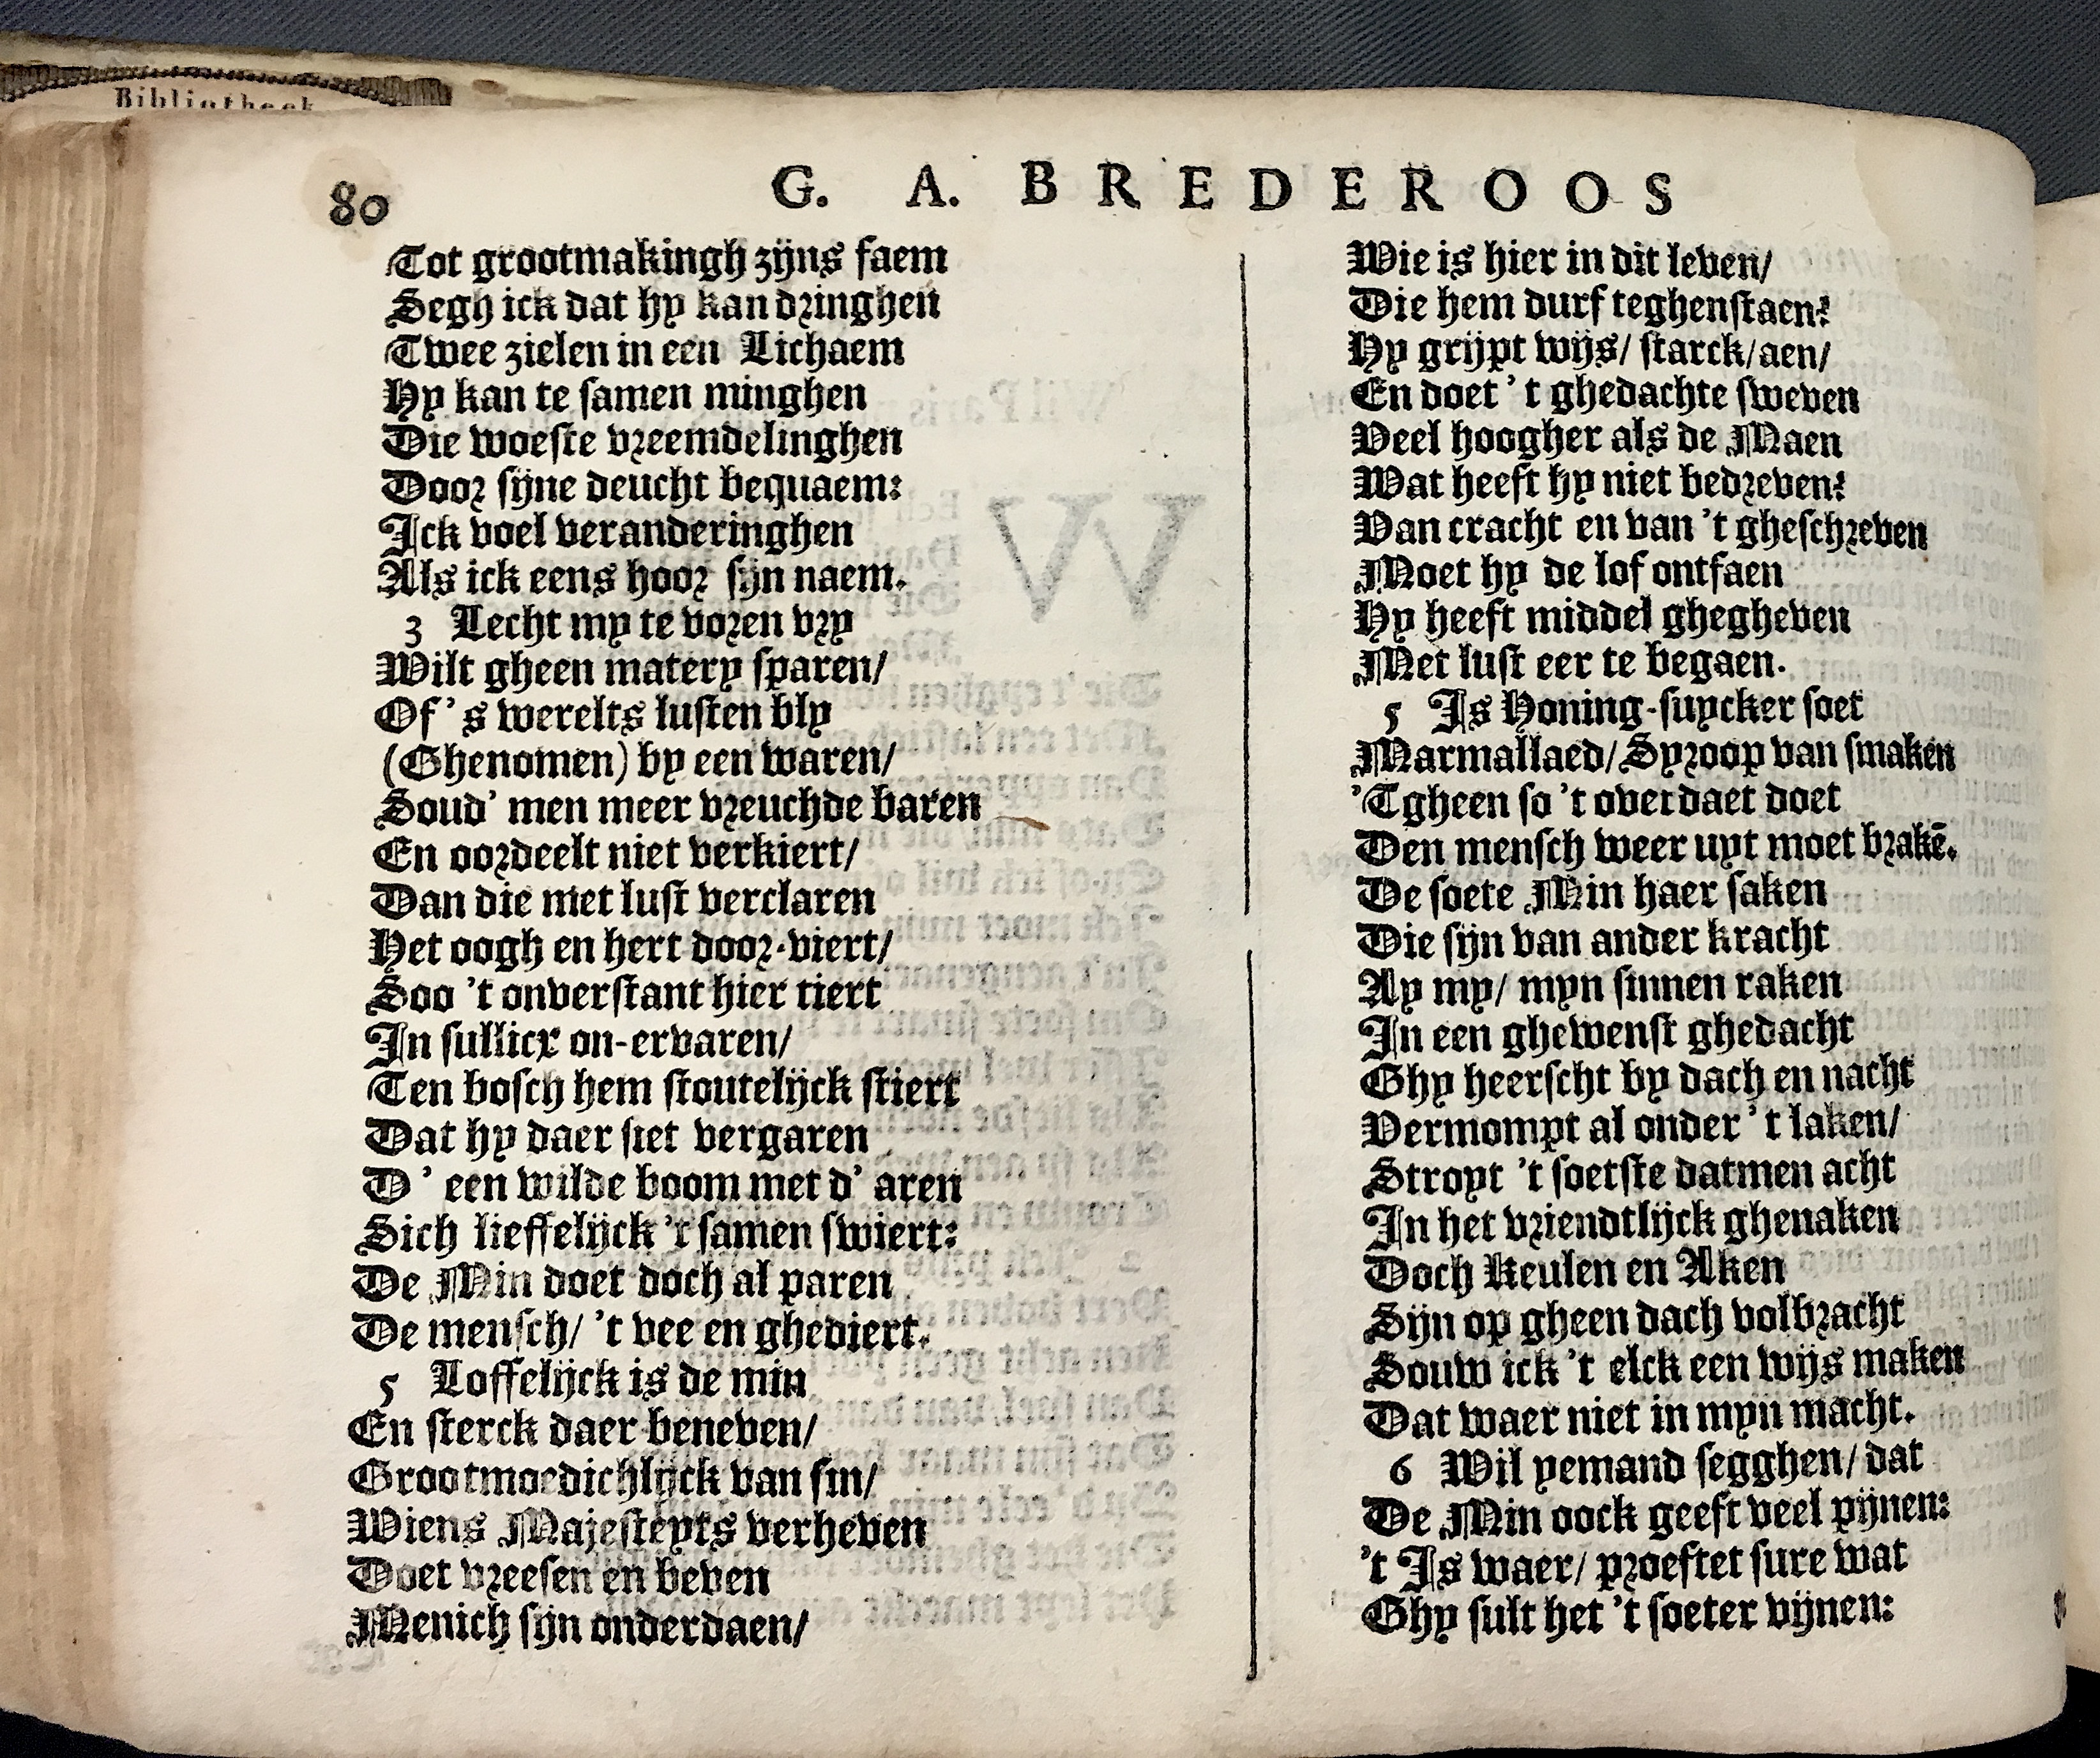 Bibliotheek
80
G. A. BREDEROOS
Tot grootmakingh zijns faem
Segh ick dat hy kan dringhen
Twee zielen in een Lichaem
Hy kan te samen minghen
Die woeste vreemdelinghen
Door sijne deucht bequaem:
Ick voel veranderinghen
Als ick eens hoor sijn naem.
3 Lecht my te voren vry
Wilt gheen matery sparen/
Of 's werelts lusten bly
(Ghenomen) by een waren/
Soud' men meer vreuchde baren
En oordeelt niet verkiert/
Dan die met lust verclaren
Het oogh en hert door-viert/
Soo 't onverstant hier tiert
In sullicx on-ervaren/
Ten bosch hem stoutelijck stiert
Dat hy daer siet vergaren
D' een wilde boom met d' aren
Sich lieffelijck 't samen swiert:
De Min doet doch al paren
De mensch/ 't vee en ghediert.
5 Loffelijck is de min
En sterck daer beneven/
Grootmoedichlijck van sin/
Wiens Majesteyts verheven
Doet vreesen en beven
Menich sijn onderdaen/
Wie is hier in dit leven/
Die hem durf teghenstaen?
Hy grijpt wijs/ starck/aen/
En doet 't ghedachte sweven
Veel hoogher als de Maen
Wat heeft hy niet bedreven?
Van cracht en van 't gheschreven
Moet hy de lof ontfaen
Hy heeft middel ghegheven
Met lust eer te begaen.
5 Is Honing-suycker soet
Marmallaed/ Syroop van smaken
'Tgheen so 't overdaet doet
Den mensch weer uyt moet brakē.
De soete Min haer saken
Die sijn van ander kracht
Ay my/ myn sinnen raken
In een ghewenst ghedacht
Ghy heerscht by dach en nacht
Vermompt al onder 't laken/
Stropt 't soetste datmen acht
In het vriendtlijck ghenaken
Doch Keulen en Aken
Sijn op gheen dach volbracht
Souw ick 't elck een wijs maken
Dat waer niet in myn macht.
6 Wil yemand segghen/ dat
De Min oock geeft veel pijnen:
't Is waer/ proeftet sure wat
Ghy sult het 't soeter vijnen: